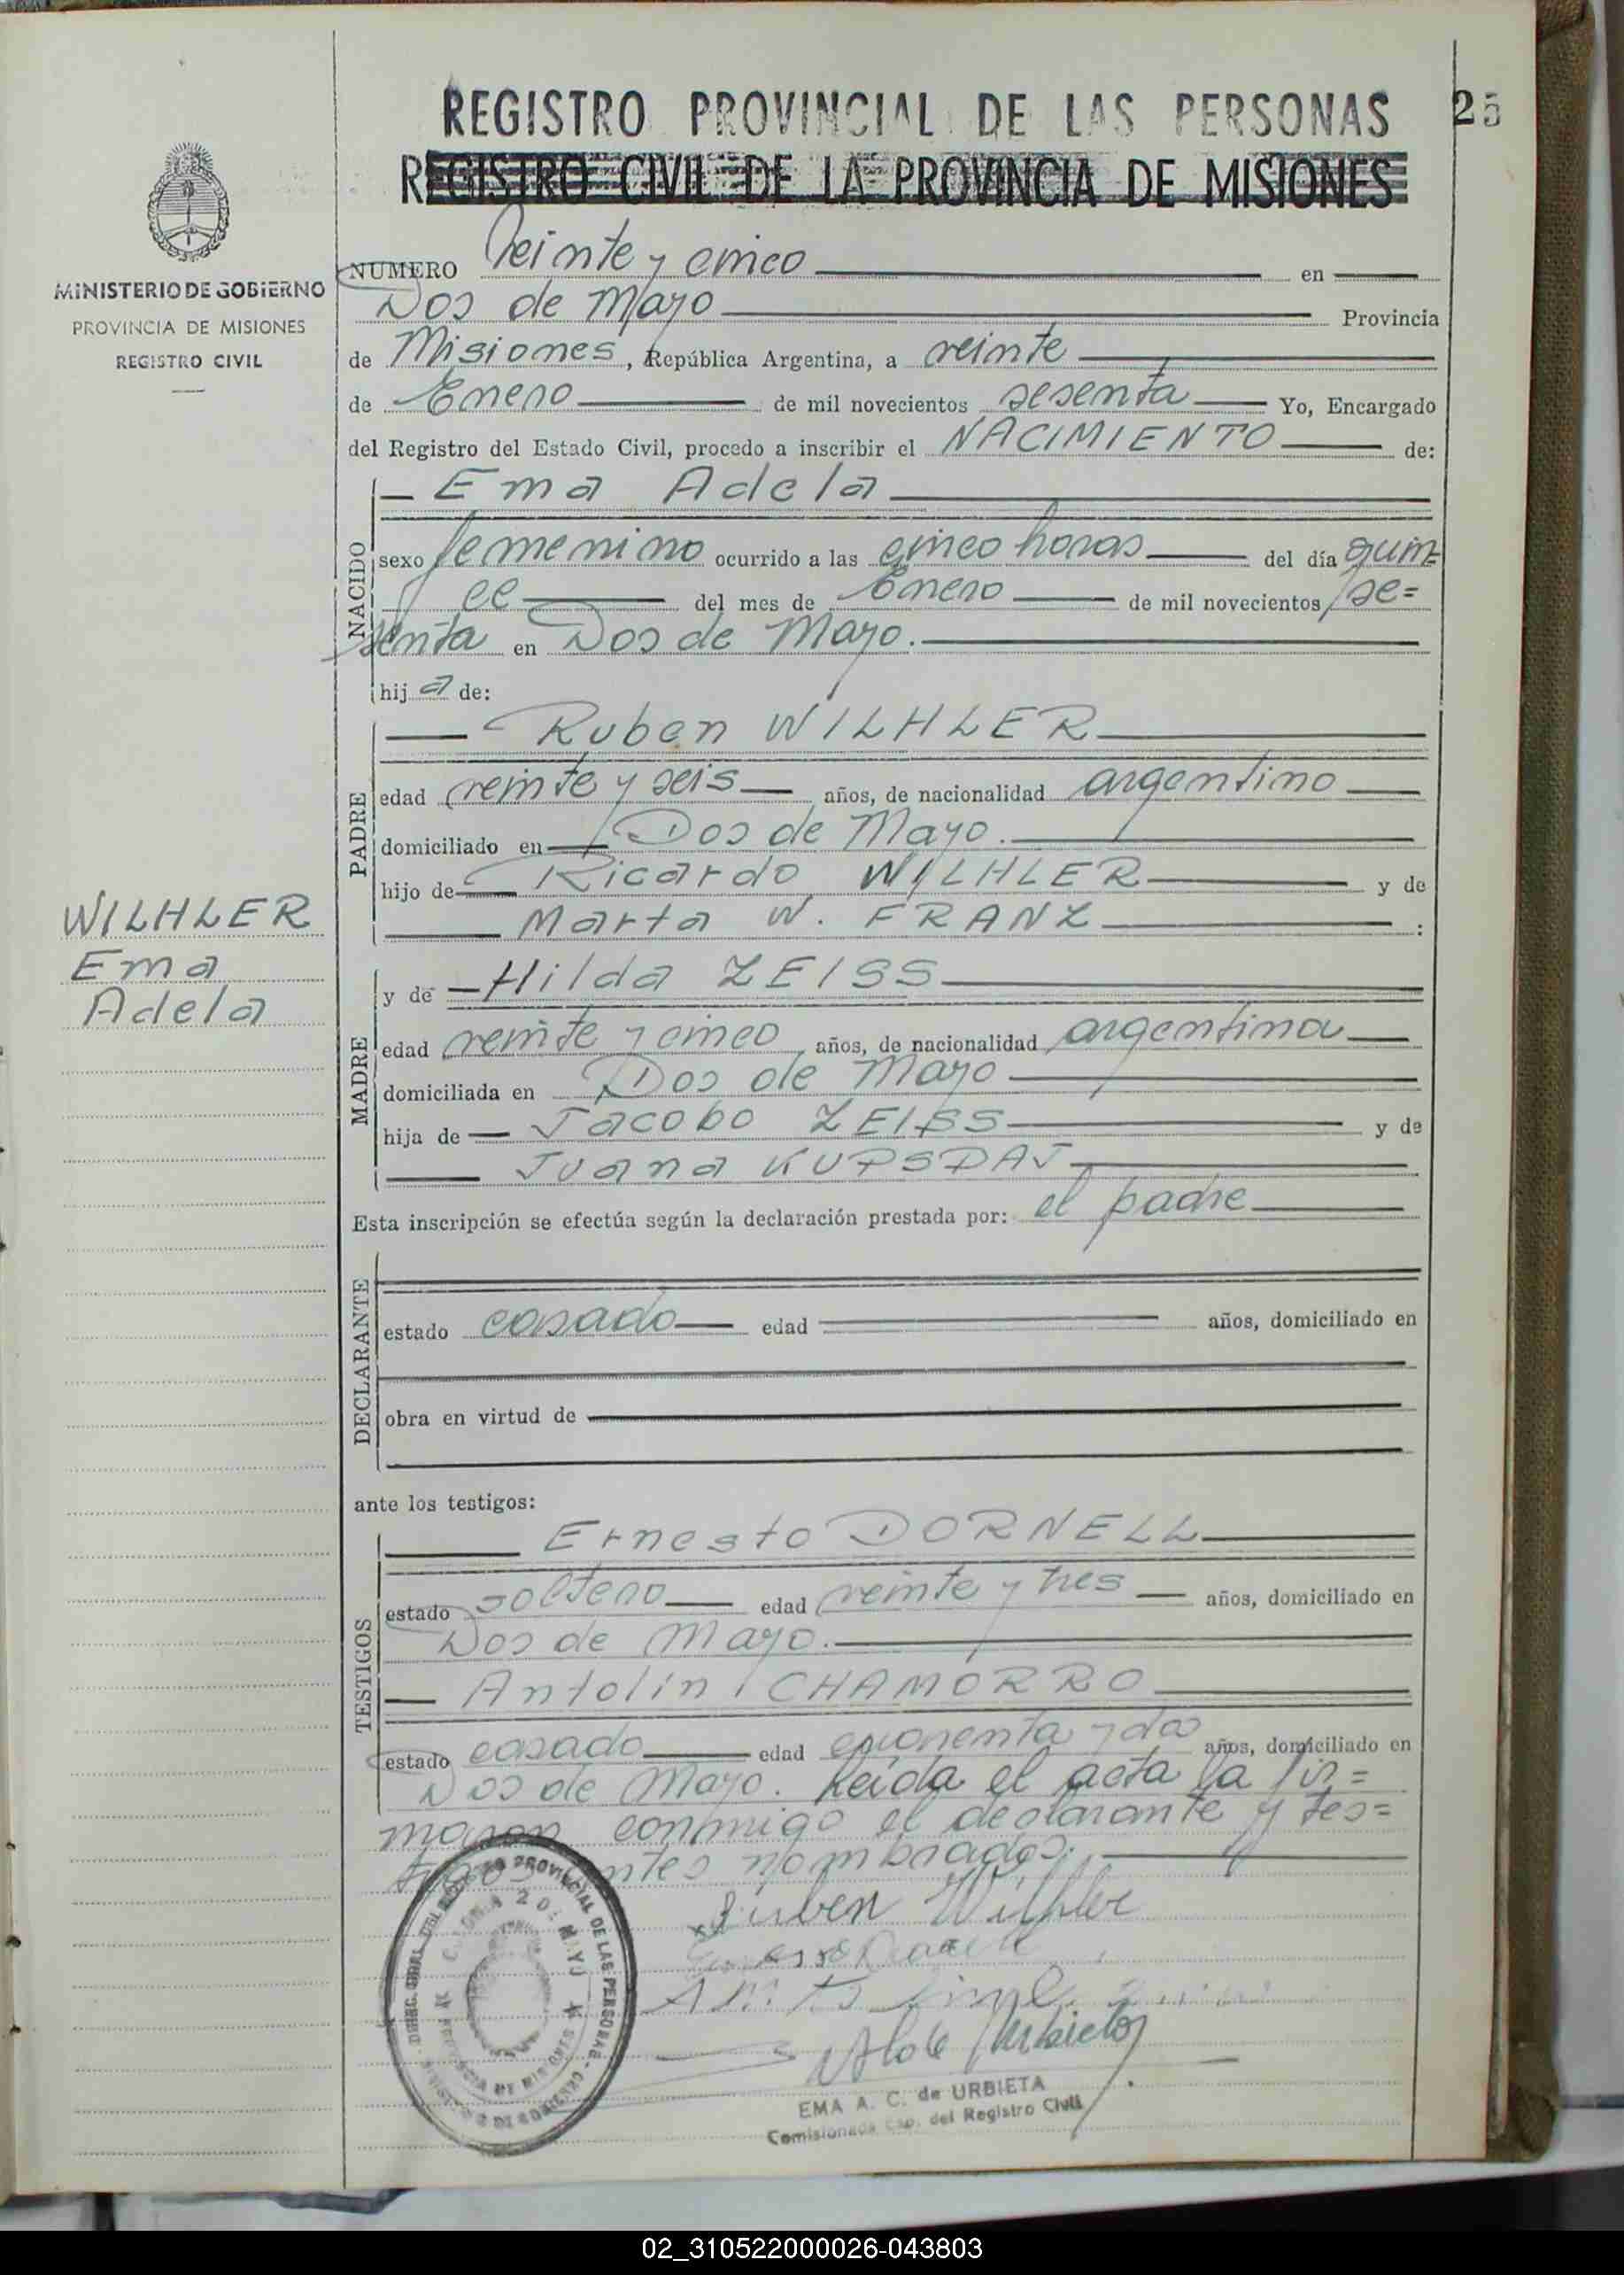 REGISTRO PROVINCIAL DE LAS PERSONAS
25
REGISTRO CIVIL DE LA PROVINCIA DE MISIONES
MINISTERIO DE GOBIERNO
PROVINCIA DE MISIONES
REGISTRO CIVIL
NUMERO Veinte y cinco en
Dos de Mayo Provincia
de Misiones, República Argentina, a veinte
de Enero de mil novecientos sesenta Yo, Encargado
del Registro del Estado Civil, procedo a inscribir el NACIMIENTO de:
NACIDO
Ema Adela
sexo femenino ocurrido a las cinco horas del día quin=
ce del mes de Enero de mil novecientos se=
senta en Dos de Mayo.
hija de:
PADRE
Ruben WILHLER
edad veinte y seis años, de nacionalidad argentino
domiciliado en Dos de Mayo.
hijo de Ricardo WILHLER y de
Marta W. FRANZ :
WILHLER
Ema
Adela
MADRE
y de Hilda ZEISS
edad veinte y cinco años, de nacionalidad argentina
domiciliada en Dos de Mayo
hija de Jacobo ZEISS y de
Juana KUPSDAJ
Esta inscripción se efectúa según la declaración prestada por: el padre
DECLARANTE
estado casado edad años, domiciliado en
obra en virtud de
ante los testigos:
TESTIGOS
Ernesto DORNELL
estado soltero edad veinte y tres años, domiciliado en
Dos de Mayo.
Antolín CHAMORRO
estado casado edad cuarenta y dos años, domiciliado en
Dos de Mayo. Leída el acta la fir=
maron conmigo el declarante y tes=
tigos antes nombrados.
Ruben Wilhler
EMA A. C. de URBIETA
Comisionada Esp. del Registro Civil
PROVINCIAL DE LAS PERSONAS
PROVINCIA DE MISIONES
02_310522000026-043803